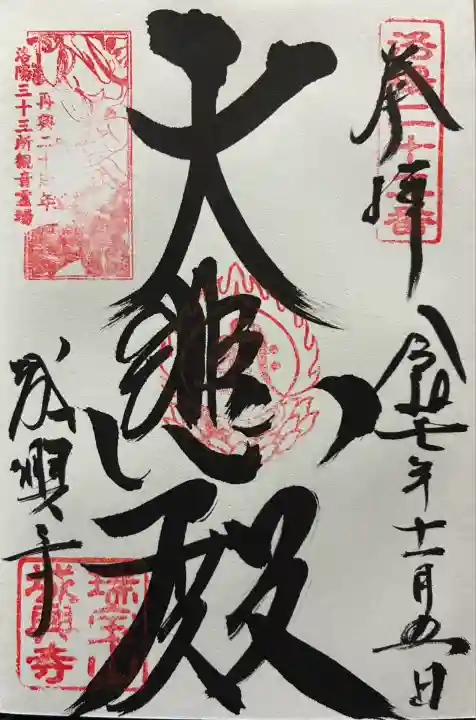 奉拝
洛陽二十二番
令和七年十一月五日
大悲殿
洛陽三十三所観音霊場
再興二十周年
城興寺
瑞宝山
城興寺